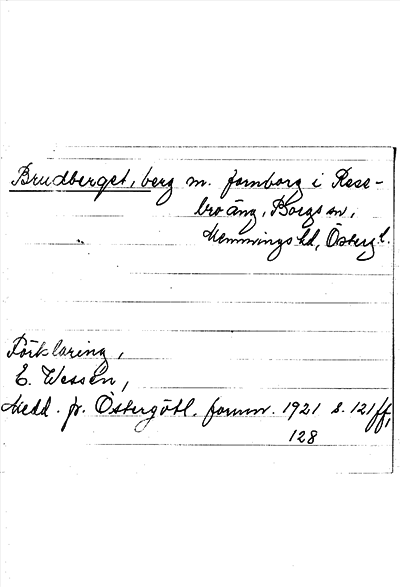 Brudberget, berg m. fornborg i Rese-
bro äng, Borgs sn,
Memmings hd, Östergl.
Förklaring,
E. Wessén,
Medd. fr. Östergötl. fornm. 1921 s. 121 ff,
128